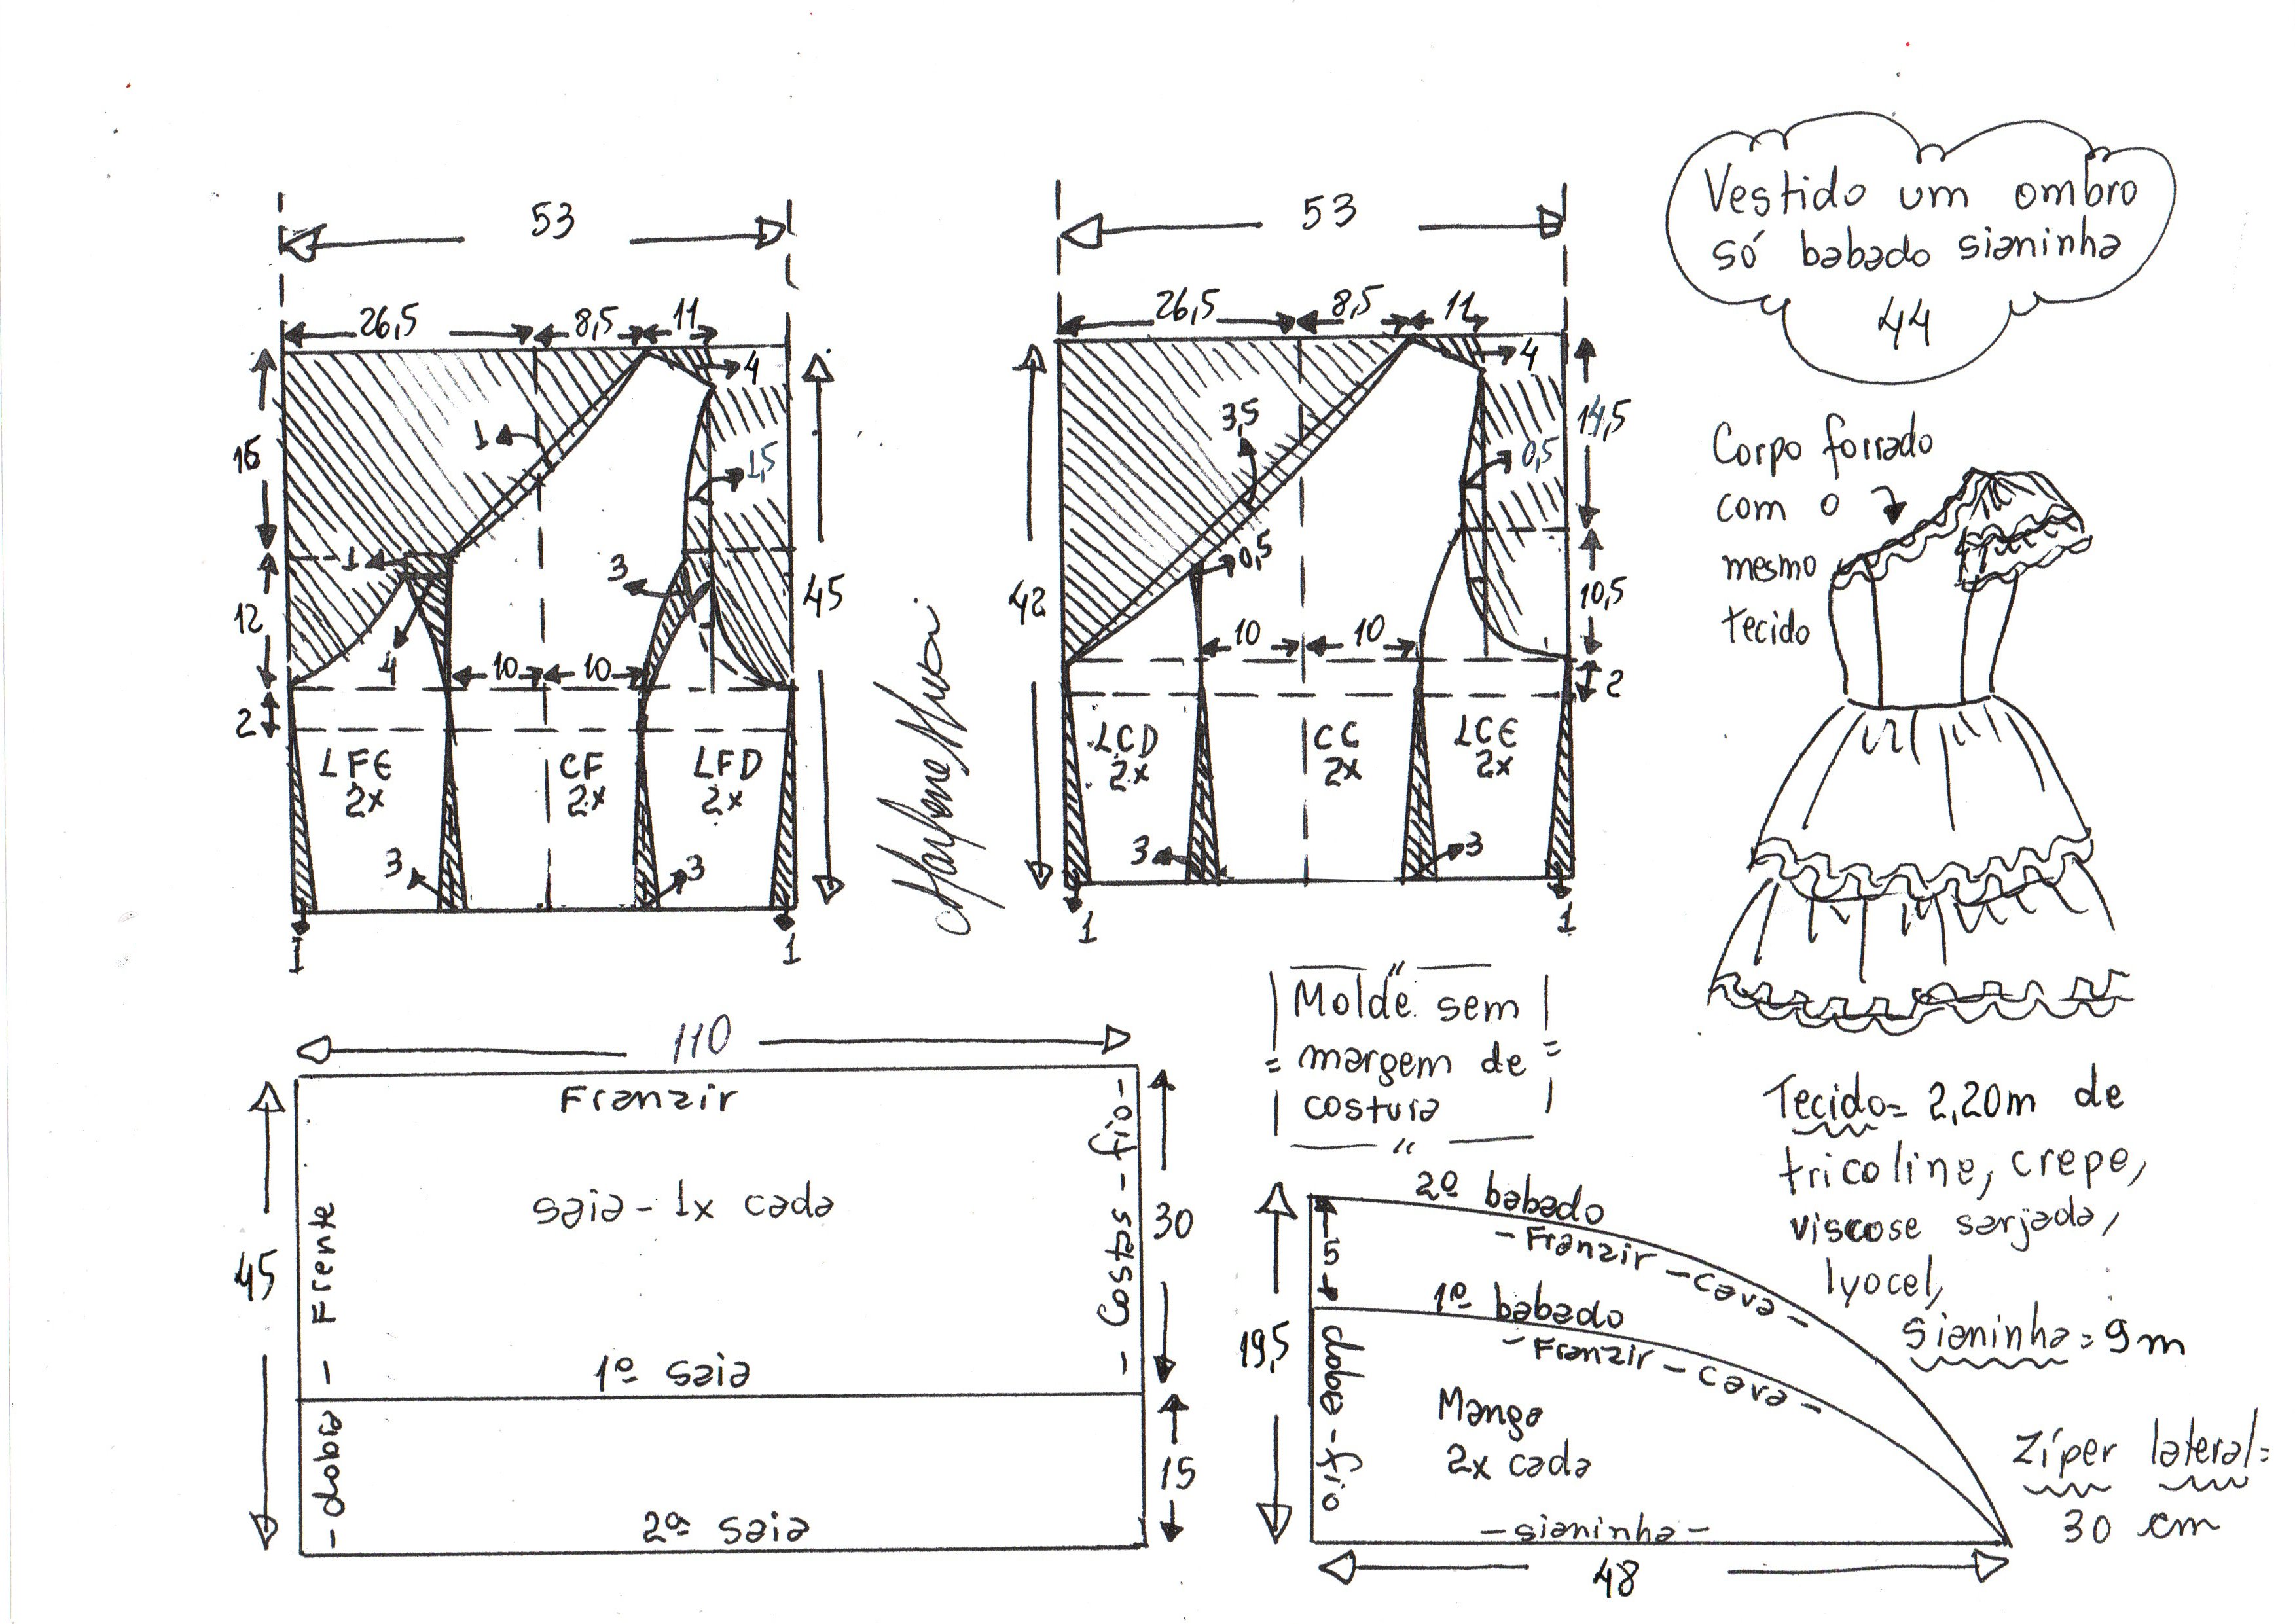 Vestido um ombro
só babado sianinha
44
53
26,5
8,5
11
4
16
1
1,5
1
3
12
4
10
10
45
2
LFE
2x
CF
2x
LFD
2x
3
3
1
1
53
26,5
8,5
11
4
3,5
0,5
14,5
0,5
10,5
42
10
10
2
LCD
2x
CC
2x
LCE
2x
3
3
1
1
Corpo forrado
com o
mesmo
tecido
Molde sem
margem de
costura
110
Franzir
saia - 1x cada
45
- Frente
- Costas - fio -
30
1ª saia
- dobra
15
2ª saia
2º babado
- Franzir - cava -
5
1º babado
- Franzir - cava -
19,5
dobra - fio
Manga
2x cada
- sianinha -
48
Tecido = 2,20m de
tricoline, crepe,
viscose sarjada,
lyocel,
sianinha = 9m
Zíper lateral =
30 cm